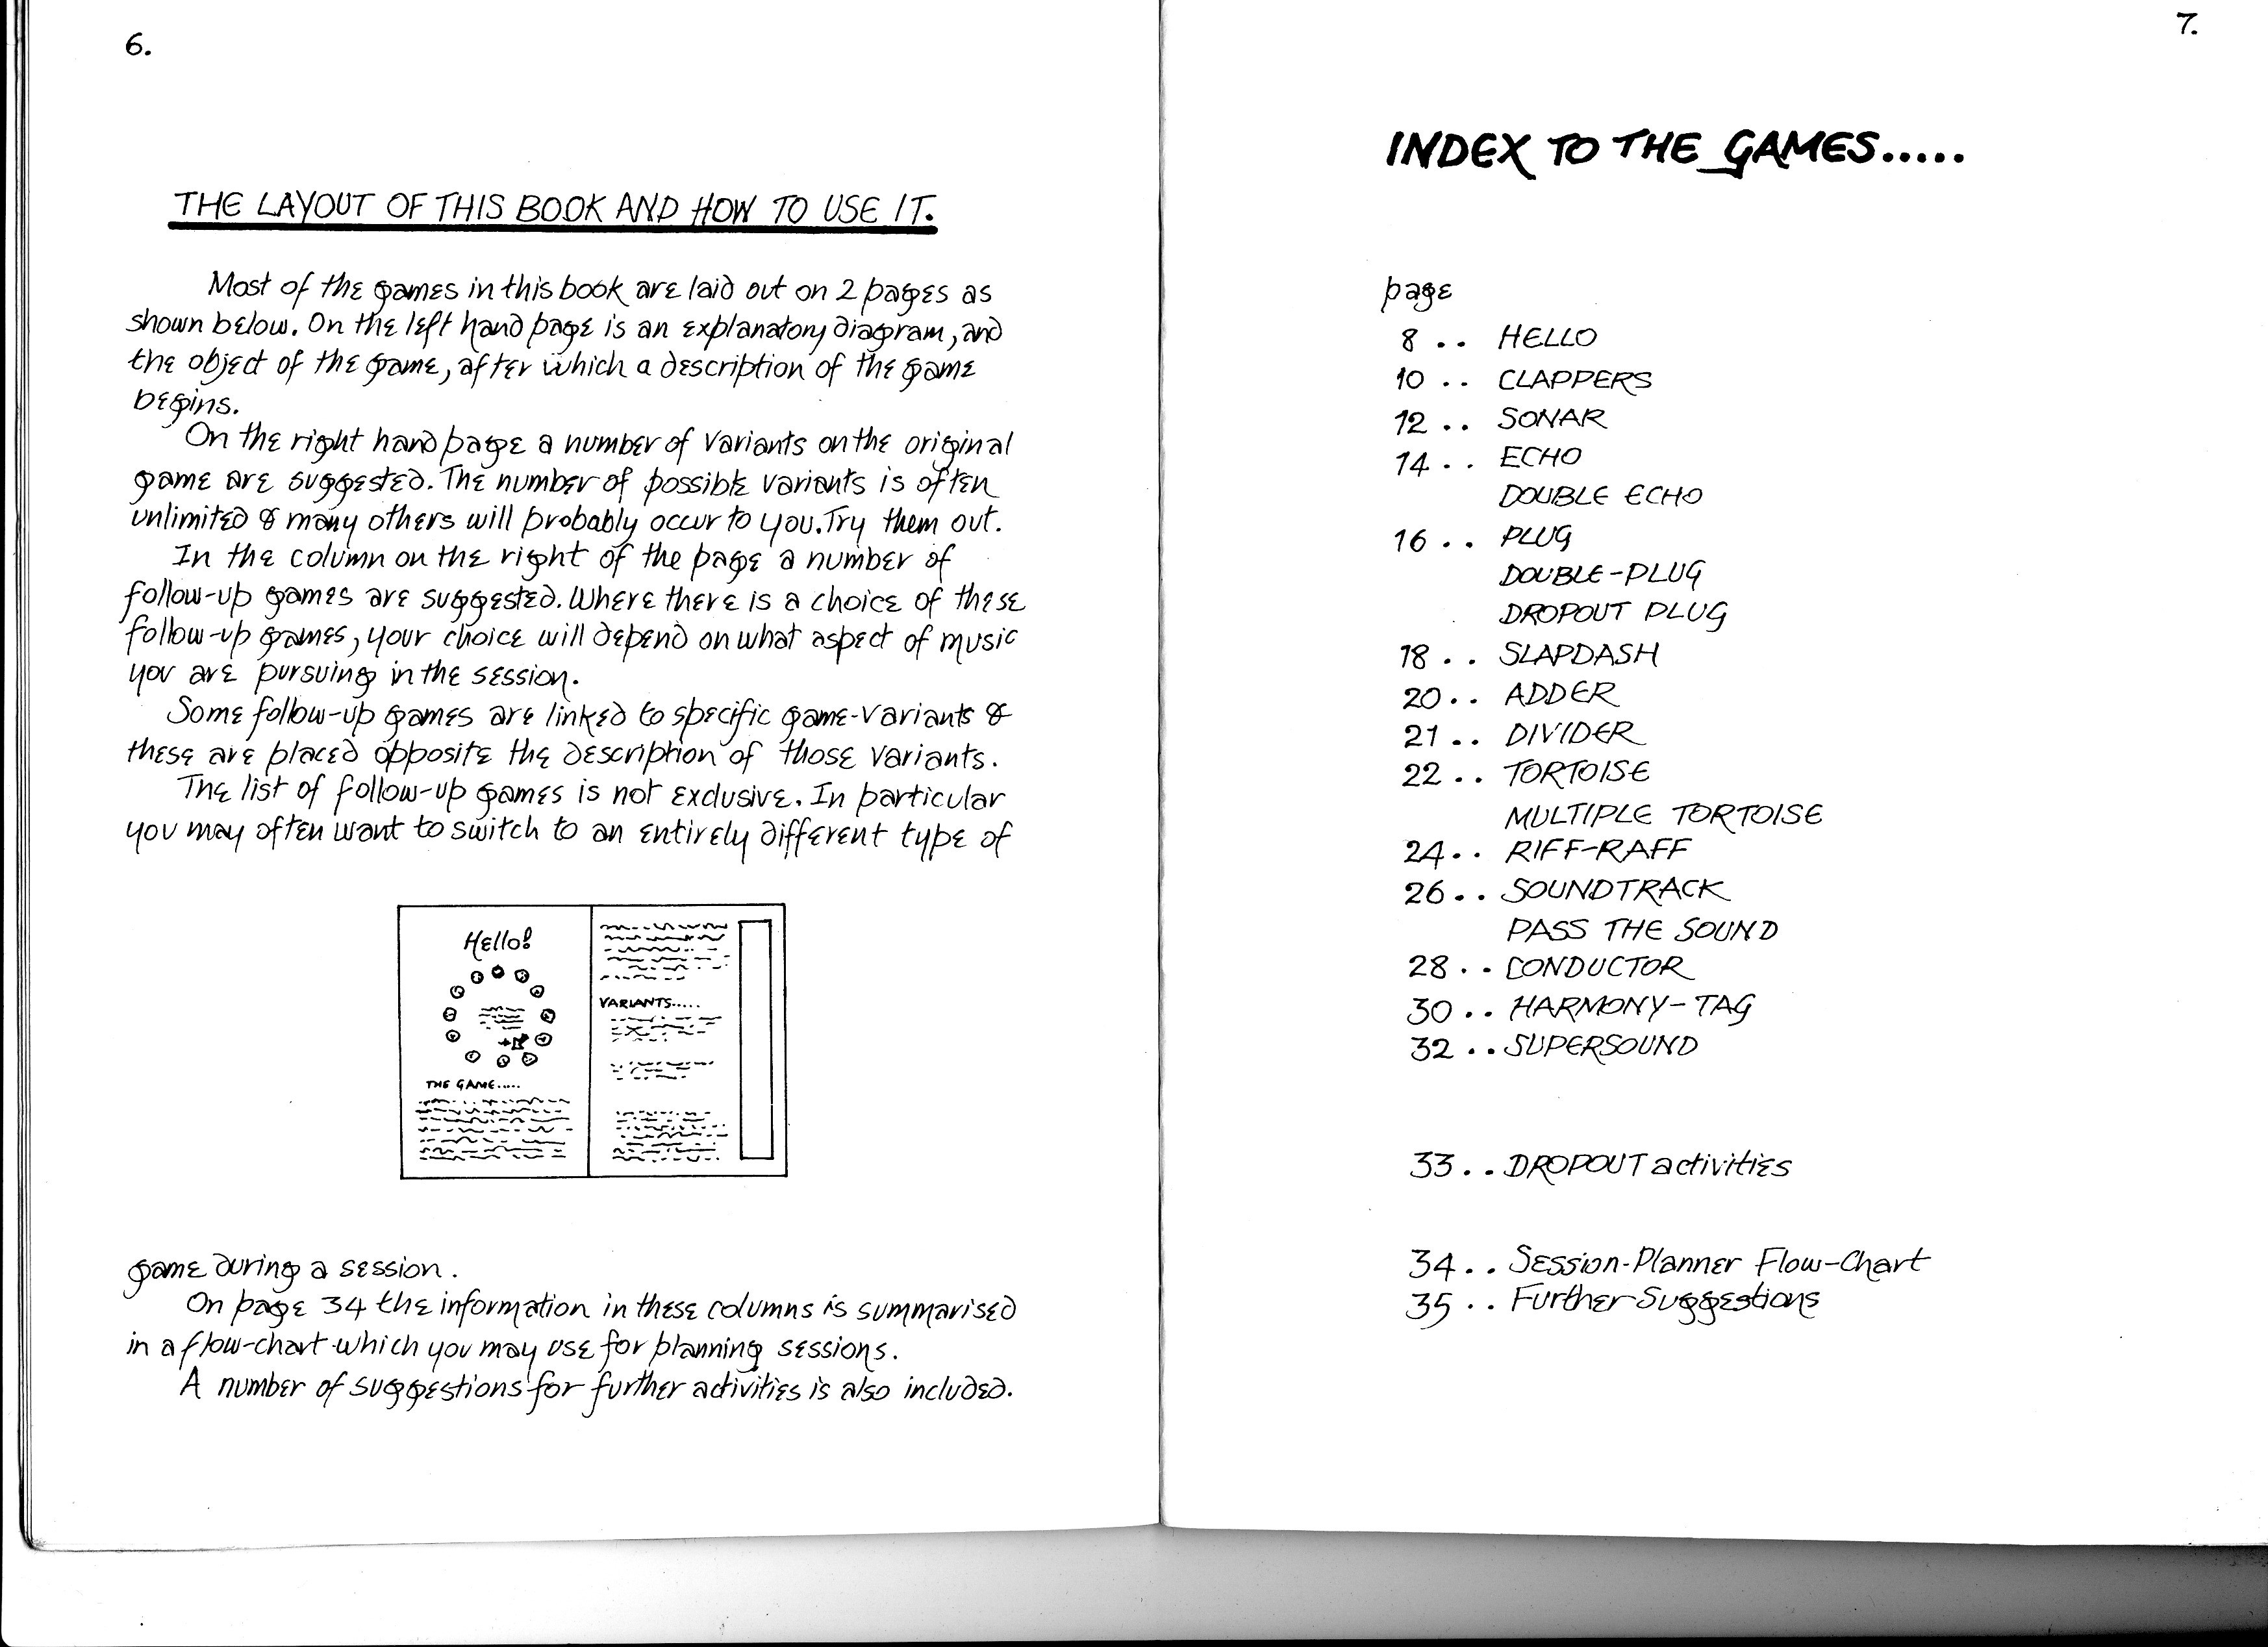 6.
THE LAYOUT OF THIS BOOK AND HOW TO USE IT.
Most of the games in this book are laid out on 2 pages as
shown below. On the left hand page is an explanatory diagram, and
the object of the game, after which a description of the game
begins.
On the right hand page a number of variants on the original
game are suggested. The number of possible variants is often
unlimited & many others will probably occur to you. Try them out.
In the column on the right of the page a number of
follow-up games are suggested. Where there is a choice of these
follow-up games, your choice will depend on what aspect of music
you are pursuing in the session.
Some follow-up games are linked to specific game-variants &
these are placed opposite the description of those variants.
The list of follow-up games is not exclusive. In particular
you may often want to switch to an entirely different type of
Hello!
THE GAME.....
VARIANTS.....
game during a session.
On page 34 the information in these columns is summarised
in a flow-chart which you may use for planning sessions.
A number of suggestions for further activities is also included.
7.
INDEX TO THE GAMES.....
page
8 .. HELLO
10 .. CLAPPERS
12 .. SONAR
14 .. ECHO
DOUBLE ECHO
16 .. PLUG
DOUBLE-PLUG
DROPOUT PLUG
18 .. SLAPDASH
20 .. ADDER
21 .. DIVIDER
22 .. TORTOISE
MULTIPLE TORTOISE
24 .. RIFF-RAFF
26 .. SOUNDTRACK
PASS THE SOUND
28 .. CONDUCTOR
30 .. HARMONY-TAG
32 .. SUPERSOUND
33 .. DROPOUT activities
34 .. Session-Planner Flow-Chart
35 .. Further Suggestions